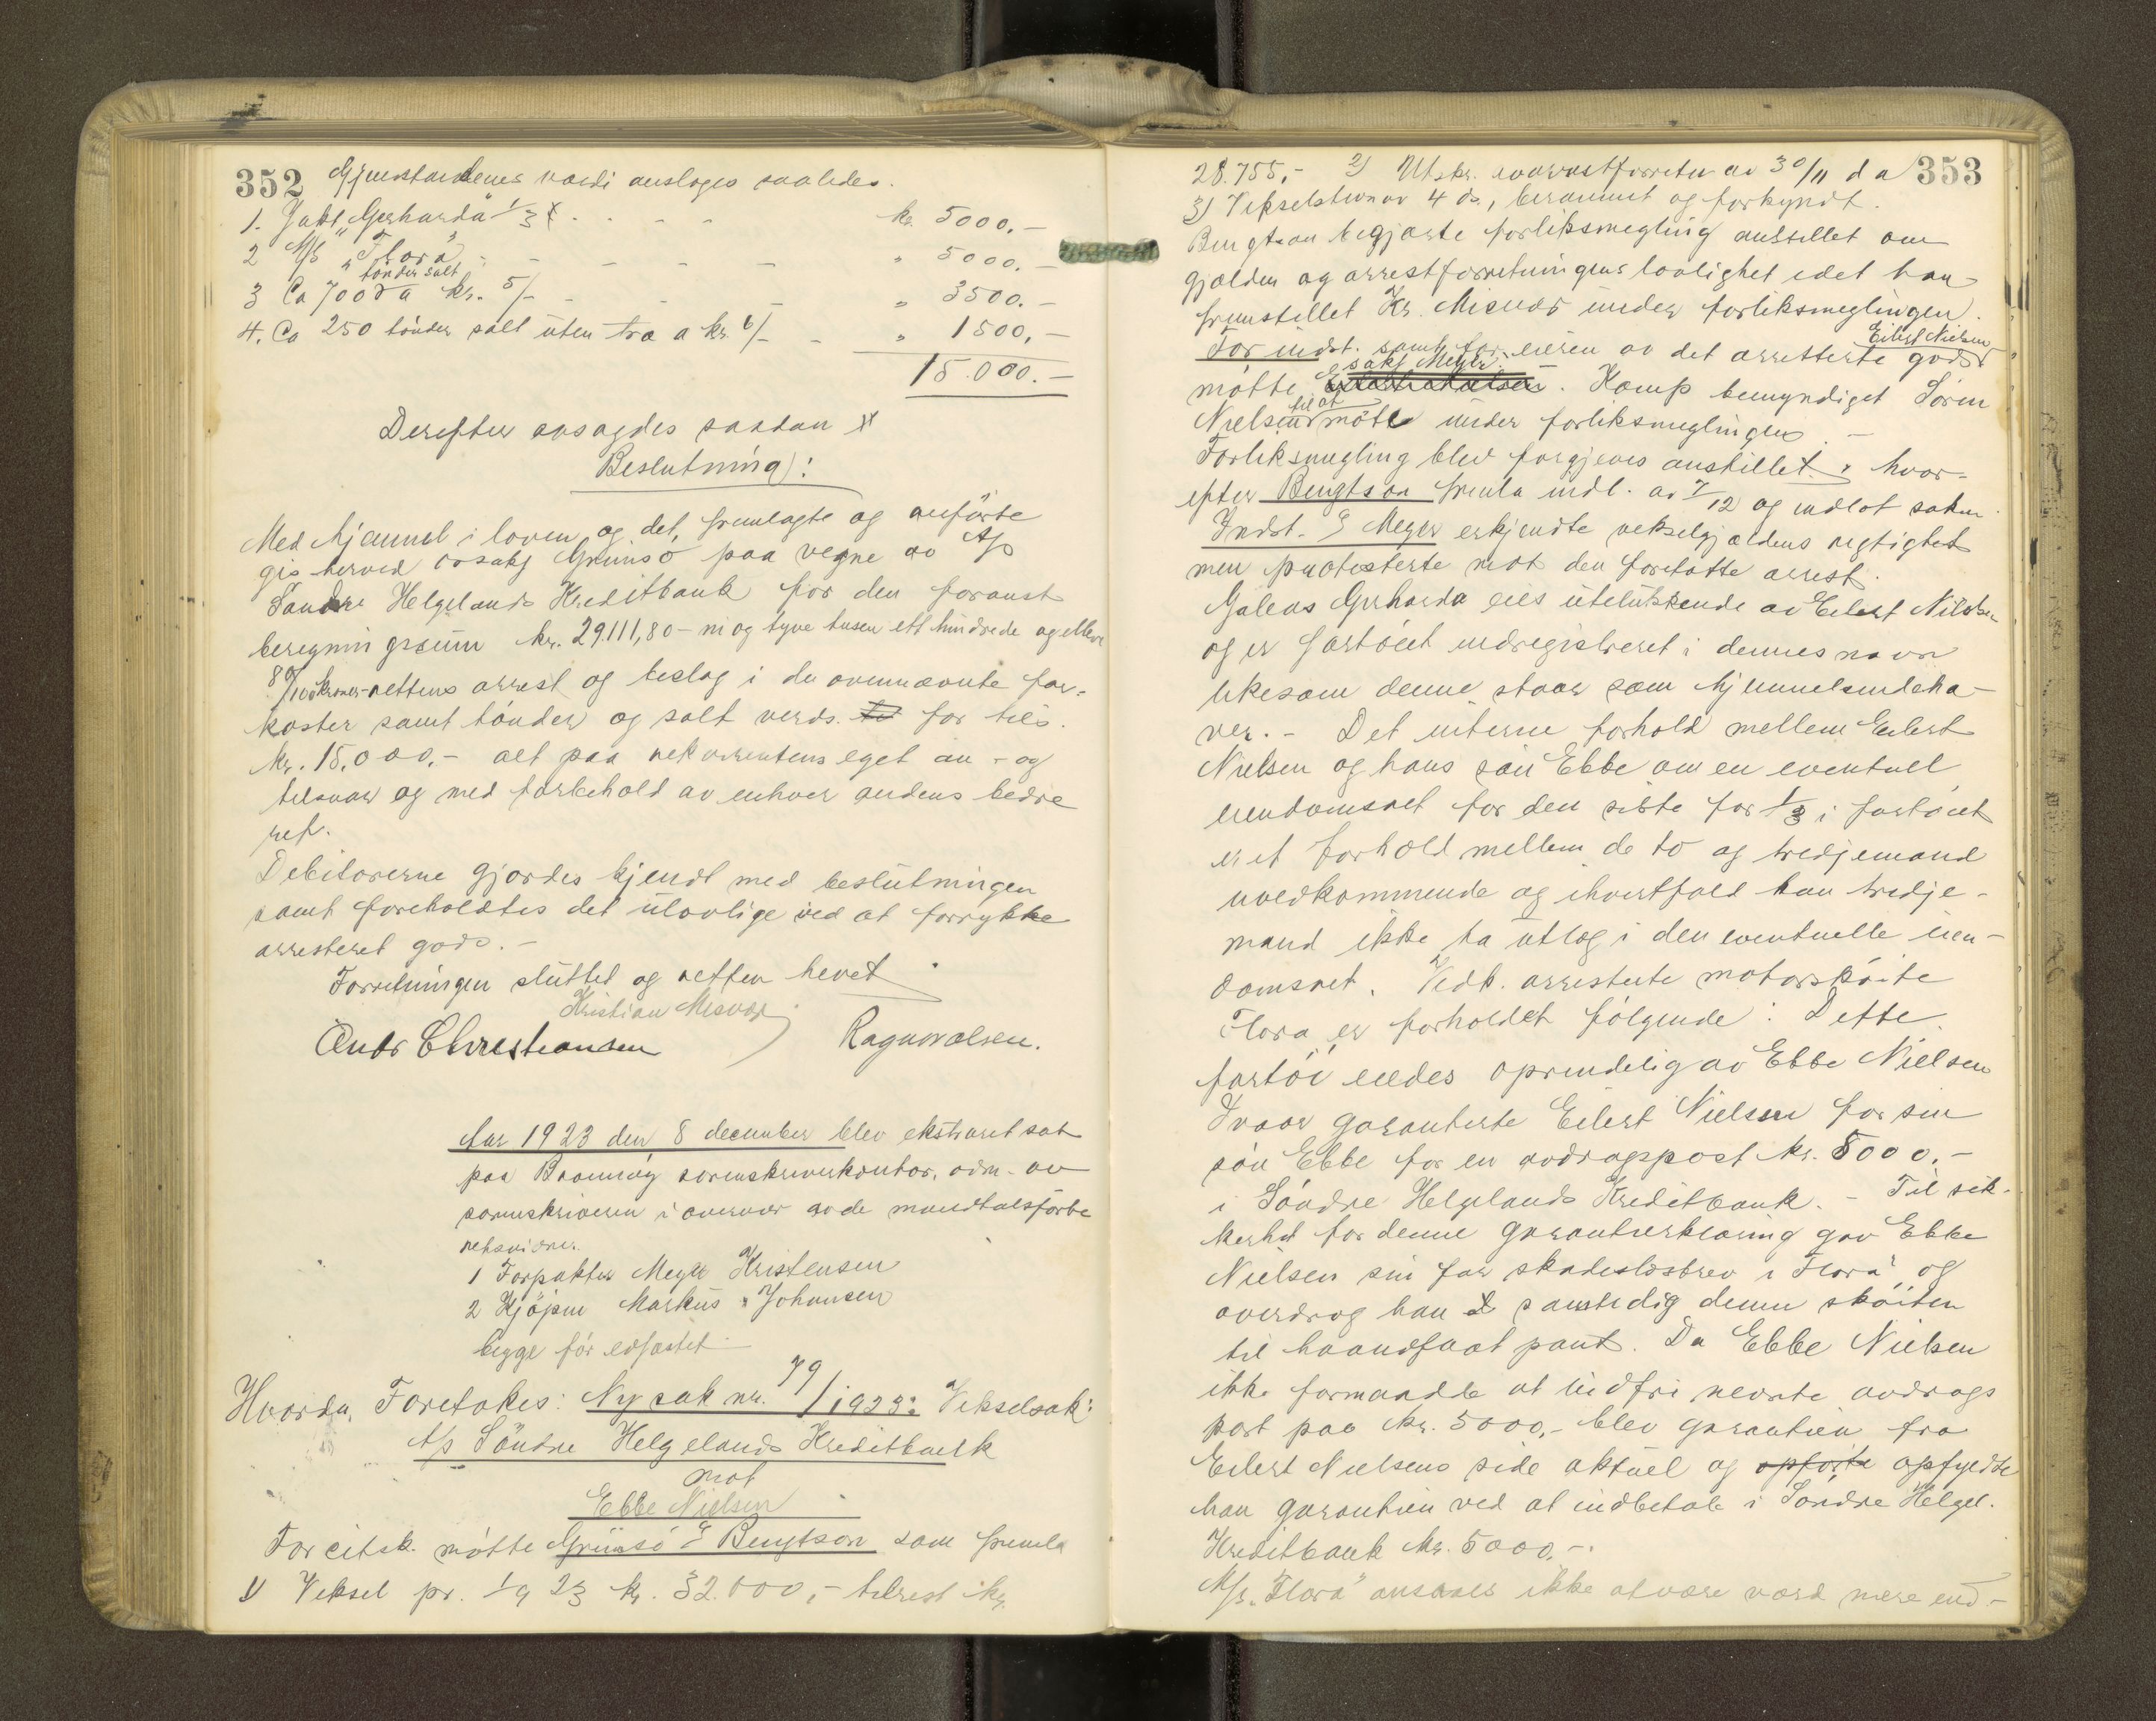 352 Gjenstandenes værdi ansloges saaledes.
1. Jakt "Gerharda" 1/3 kr. 5000.-
2 M/S "Flora" - - - - - " 5000.-
tönder salt
3 Ca 700 da kr. 5/- - - - " 3500.-
4. Ca 250 tönder salt uten træ a kr. 6/- - " 1500,-
15.000.-
Derefter avsagdes saadan
Beslutning:
Med hjemmel i loven og det fremlagte og anförte
gis herved ovsakf Grünsö paa vegne av A/S
Söndre Helgelands Kreditbank for den foranst
beregningssum kr. 29.111,80 - ni og tyve tusen ett hundrede og elleve
80/100 kroner - rettens arrest og beslag i de ovennævnte far-
koster samt tönder og salt verds. for tils.
Kr. 15.000.- alt paa rekvirentens eget an - og
tilsvar og med forbehold av enhver andens bedre
ret.
Debitorerne gjordes kjendt med beslutningen
samt foreholdtes det ulovlige ved at forrykke
arresteret gods. -
Forretningen sluttet og retten hevet.
Kristian Misvær
Andr Christiansen Ragnvalsen.
Aar 1923 den 8 december blev ekstraret sat
paa Brönnöy sorenskriverkontor, adm. av
sorenskriveren i overvær av de mandtalsförte
retsvidner.
1 Forpakter Meyer Kristensen
2 Kjöpm Markus Johansen
begge för edfæstet
Hvorda, Foretokes: Ny sak nr. 79/1923: Vekselsak:
A/S Söndre Helgelands Kreditbank
mot
Ebbe Nielsen
For citsk. mötte Grünsö Bengtson som fremla
1) Veksel pr. 1/9 23 kr. 32.000,- tilrest kr.
28.755,- 2) Utskr. av arrestforretn av 30/11 d a 353
3) Vekselstevn av 4 ds., berammet og forkyndt.
Bengtson begjærte forliksmegling anstillet om
gjælden og arrestforretningens lovlighet idet han
fremstillet Kr. Misvær under forliksmeglingen.
Eilert Nielsen
For indst. samt for eieren av det arresterte gods
sakf Meyer
mötte . Kamp bemyndiget Sören
til at
Nielsen möte under forliksmeglingen. -
Forliksmegling blev forgjæves anstillet, hvor-
efter Bengtson fremla indl. av 7/12 og indlot saken.
Indst. Meyer erkjendte vekselgjældens rigtighet
men protesterte mot den foretatte arrest.
Galeas Gerharda eies utelukkende av Eilert Nielsen
og er fartöiet indregistreret i dennes navn
likesom denne staar som hjemmelsindeha-
ver. - Det interne forhold mellem Eilert
Nielsen og hans sön Ebbe om en eventuel
eiendomsret for den siste for 1/3 i fartöiet
er et forhold mellem de to og tredjemand
uvedkommende og ihvertfald kan tredje-
mand ikke ta utlæg i den eventuelle eien-
domsret. Vedk. arresterte motorsköite
Flora er forholdet fölgende: Dette
fartöi eiedes oprindelig av Ebbe Nielsen
Ivaar garanterte Eilert Nielsen for sin
sön Ebbe for en avdragspost kr. 5000.-
i Söndre Helgelands Kreditbank. - Til sik-
kerhet for denne garantierklæring gav Ebbe
Nielsen sin far skadeslösbrev i "Flora" og
overdrog han samtidig denne sköiten
til haandfaat pant. Da Ebbe Nielsen
ikke formaadde at indfri nevnte avdrags
post paa kr. 5000,- blev garantien fra
Eilert Nielsens side aktuel og opförte opfyldte
han garantien ved at indbetale i Söndre Helgel.
Kreditbank kr. 5000.-.
M/S. "Flora" ansaaes ikke at være værd mere end -